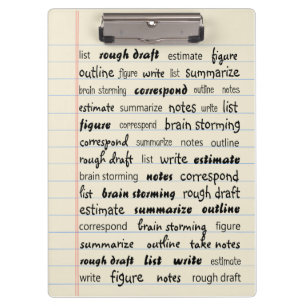 list rough draft estimate figure
outline figure write list summarize
brain storming correspond outline notes
estimate summarize notes write list
figure correspond brain storming
correspond summarize notes outline
rough draft list write estimate
brain storming notes correspond
list brain storming rough draft
estimate summarize outline
correspond brain storming figure
summarize outline take notes
rough draft list write estimate
write figure notes rough draft